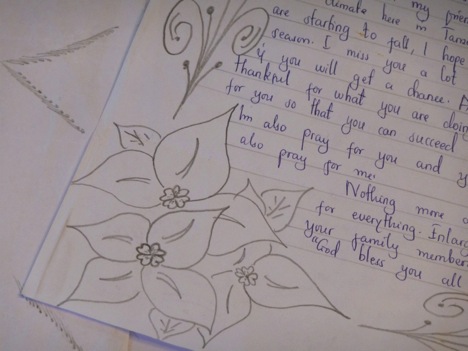 my
climate here in
are starting to fall, I hope
season. I miss you a lot
you will get a chance.
thankful for what you are doin
for you so that you can succeed
Im also pray for you and
also pray for me.
Nothing more
for everything. Enlarg
your family member
"God bless you all